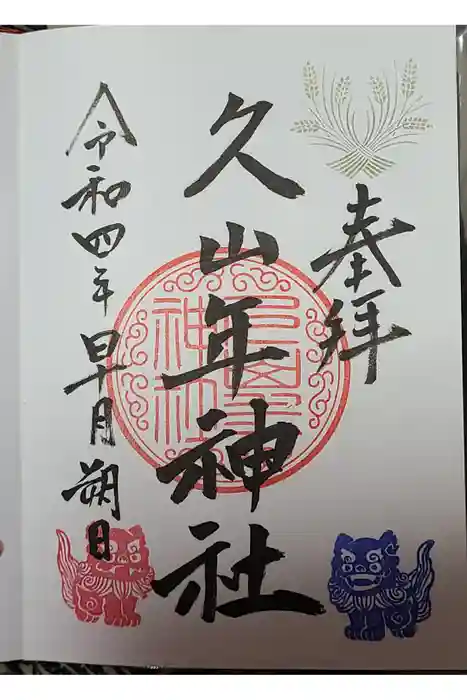 奉拝
久山年神社
令和四年早月朔日